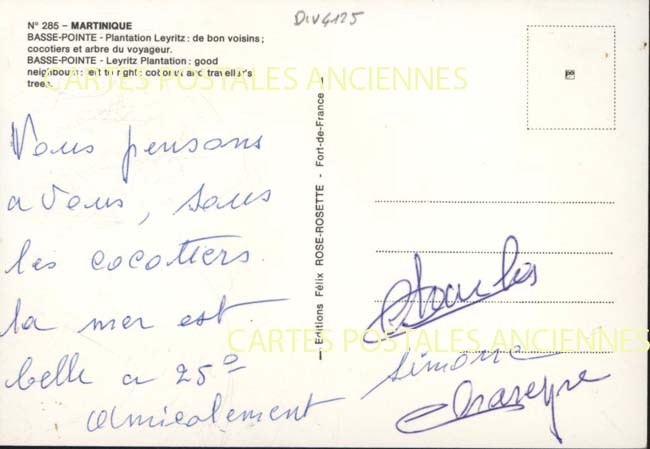 DIV4125
N° 285 – MARTINIQUE
BASSE-POINTE - Plantation Leyritz : de bon voisins ;
cocotiers et arbre du voyageur.
BASSE-POINTE - Leyritz Plantation : good
neighbours : left to right : cokonut and traveller's
trees.
CARTES POSTALES ANCIENNES
Vous pensons
a vous, sous
les cocotiers
la mer est
belle a 25°
amicalement
— Editions Félix ROSE-ROSETTE - Fort-de-France —
Charles
CARTES POSTALES ANCIENNES
Simone